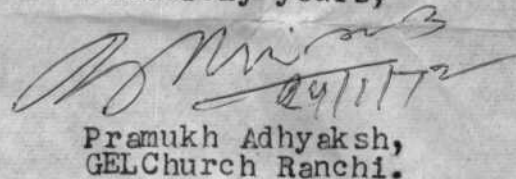 years,
24/1/72
Pramukh Adhyaksh,
GELChurch Ranchi.